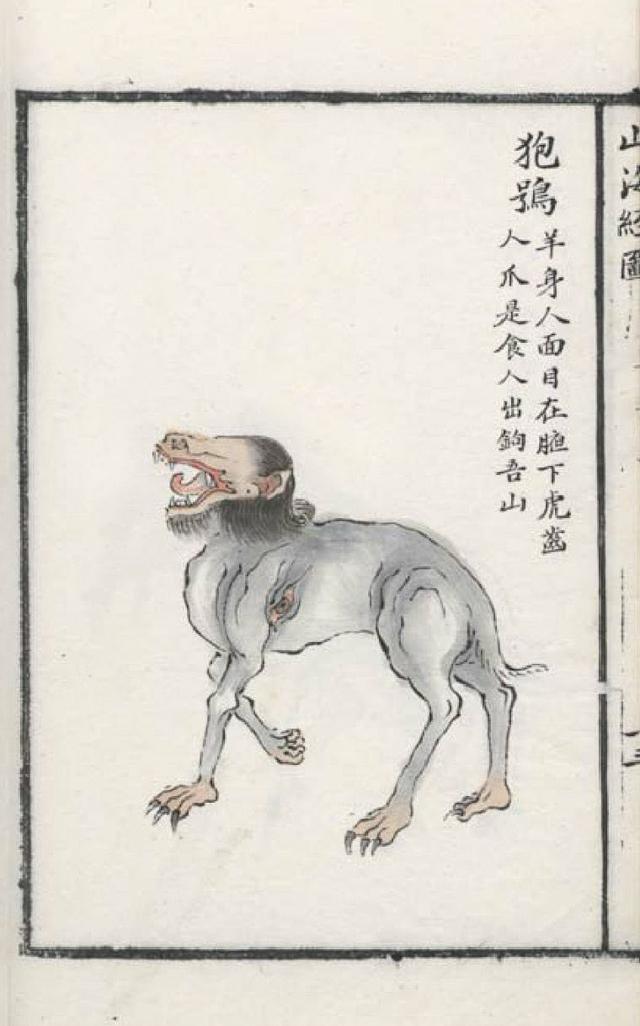 山海經圖
狍鴞
羊身人面目在腋下虎齒
人爪是食人出鉤吾山